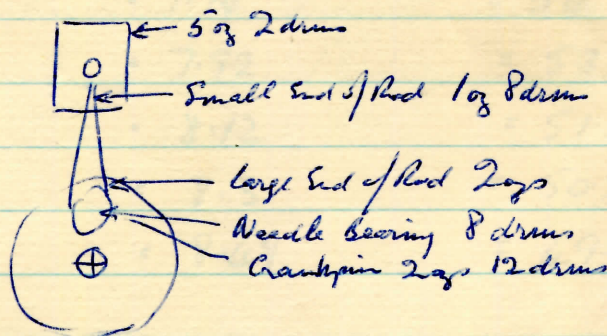 5oz 2drms
Small End of Rod 1oz 8drms
Large End of Rod 2ozs
Needle Bearing 8 drms
Crankpin 2ozs 12drms